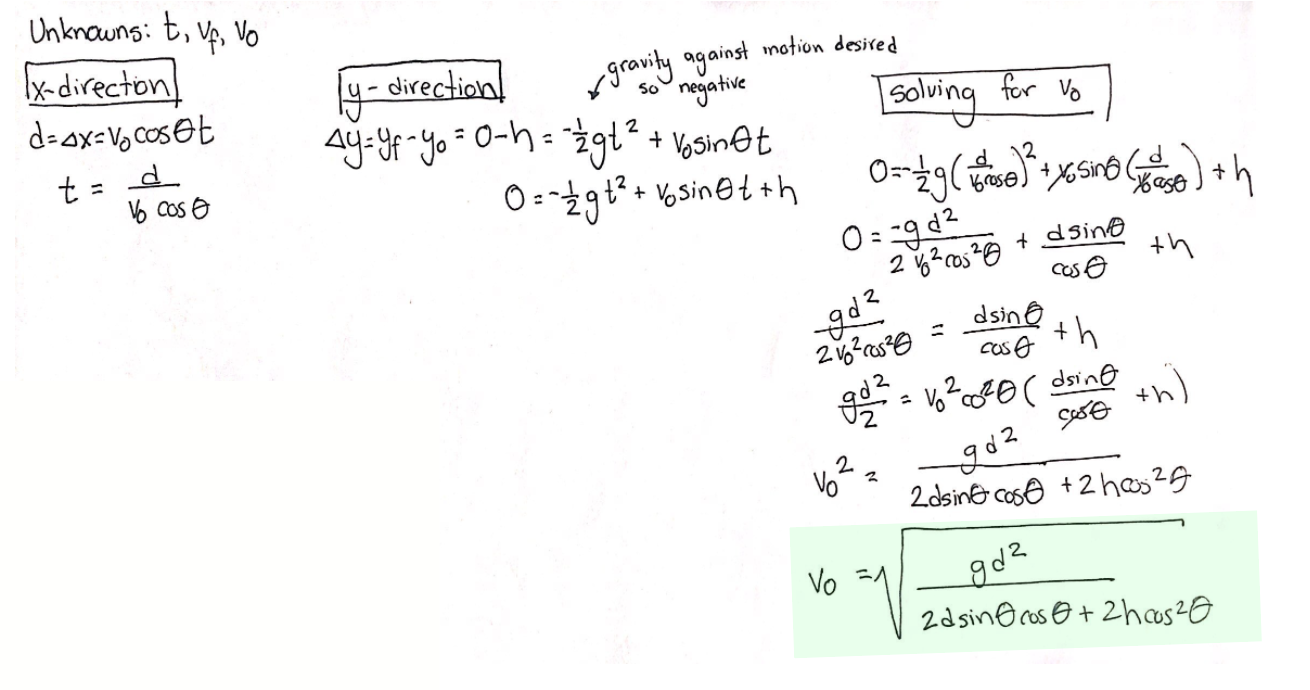 Unknowns: t, v_f, v_0
x-direction
d=Δx=v_0 cosθt
t = d / (v_0 cosθ)
y-direction
gravity against motion desired
so negative
Δy=y_f-y_0 = 0-h = -1/2 gt² + v_0 sinθt
0 = -1/2 gt² + v_0 sinθt + h
solving for v_0
0=-1/2 g(d / (v_0 cosθ))² + v_0 sinθ(d / (v_0 cosθ)) + h
0 = -gd² / (2 v_0² cos²θ) + dsinθ / cosθ + h
gd² / (2v_0² cos²θ) = dsinθ / cosθ + h
gd² / 2 = v_0² cos²θ( dsinθ / cosθ + h)
v_0² = gd² / (2dsinθ cosθ + 2hcos²θ)
v_0 = √(gd² / (2dsinθ cosθ + 2hcos²θ))